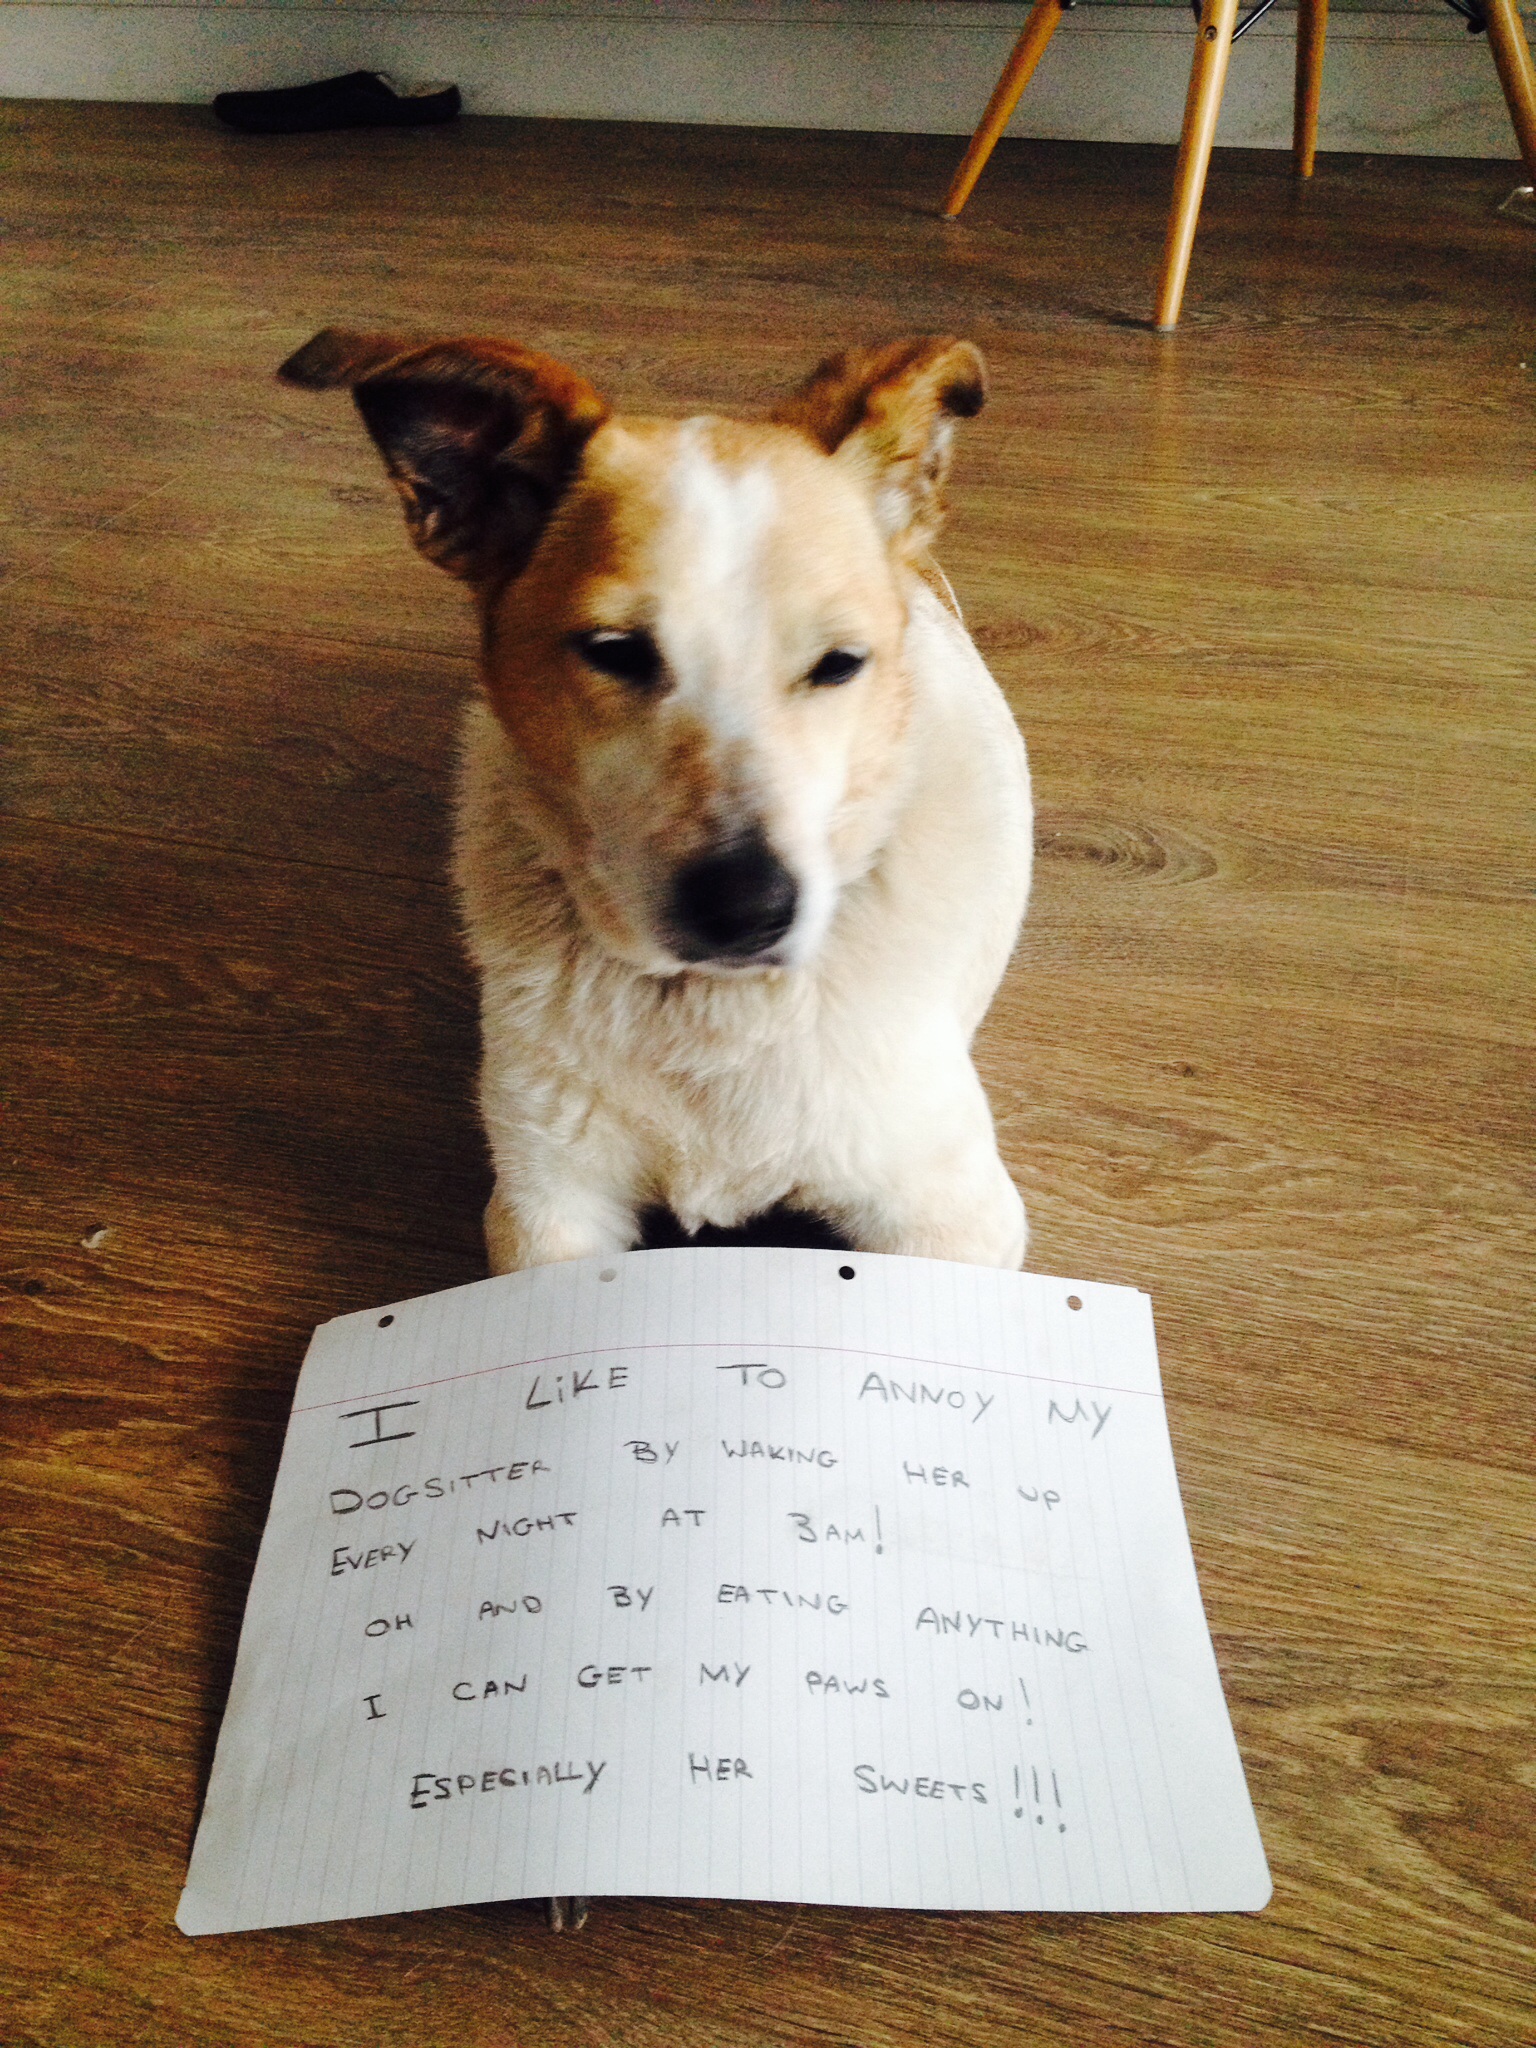 I LIKE TO ANNOY MY
DOGSITTER BY WAKING HER UP
EVERY NIGHT AT 3AM!
OH AND BY EATING ANYTHING
I CAN GET MY PAWS ON!
ESPECIALLY HER SWEETS!!!